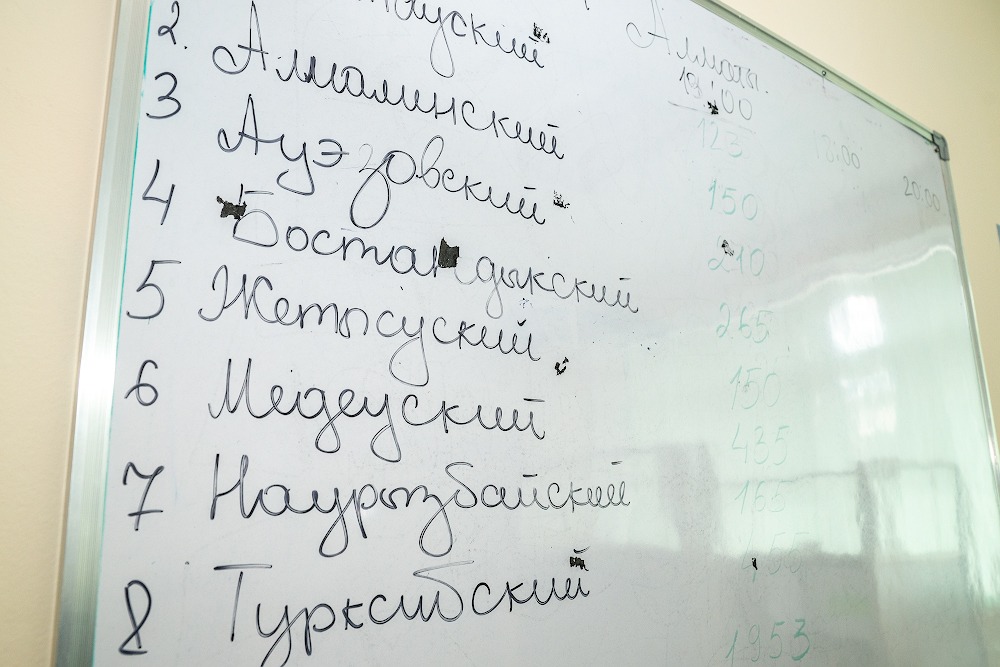 Алматы.
19:00
2. Алмалинский 123 18:00
3 Ауэзовский 150 20:00
4 Бостандыкский 210
5 Жетысуский 265
6 Медеуский 150
7 Наурызбайский 435
165
8 Турксибский
1953